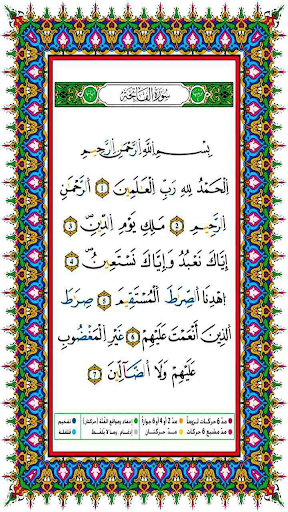 سُورَةُ الفَاتِحَةِ
بِسْمِ اِللَّهِ اِلرَّحْمَٰنِ اِلرَّحِيمِ
اِلْحَمْدُ لِلهِ رَبِّ اِلْعَٰلَمِينَ 1 اَلرَّحْمَٰنِ
اِلرَّحِيمِ 2 مَلِكِ يَوْمِ اِلدِّينِ 3
إِيَّاكَ نَعْبُدُ وَإِيَّاكَ نَسْتَعِينُ 4
اُهْدِنَا اَلصِّرَٰطَ اَلْمُسْتَقِيمَ 5 صِرَٰطَ
اَلذِينَ أَنْعَمْتَ عَلَيْهِمْ 6 غَيْرِ اِلْمَغْضُوبِ
عَلَيْهِمْ وَلَا اَلضَّآلِّينَ 7
مدّ 6 حركات لزوماً مدّ 2 أو 4 أو 6 جوازاً إخفاء ومواقع الغُنَّة (حركتان) تفخيم
مدّ مشبع 6 حركات مدّ حركتان إدغام، وما لا يُلفَظ قلقلة